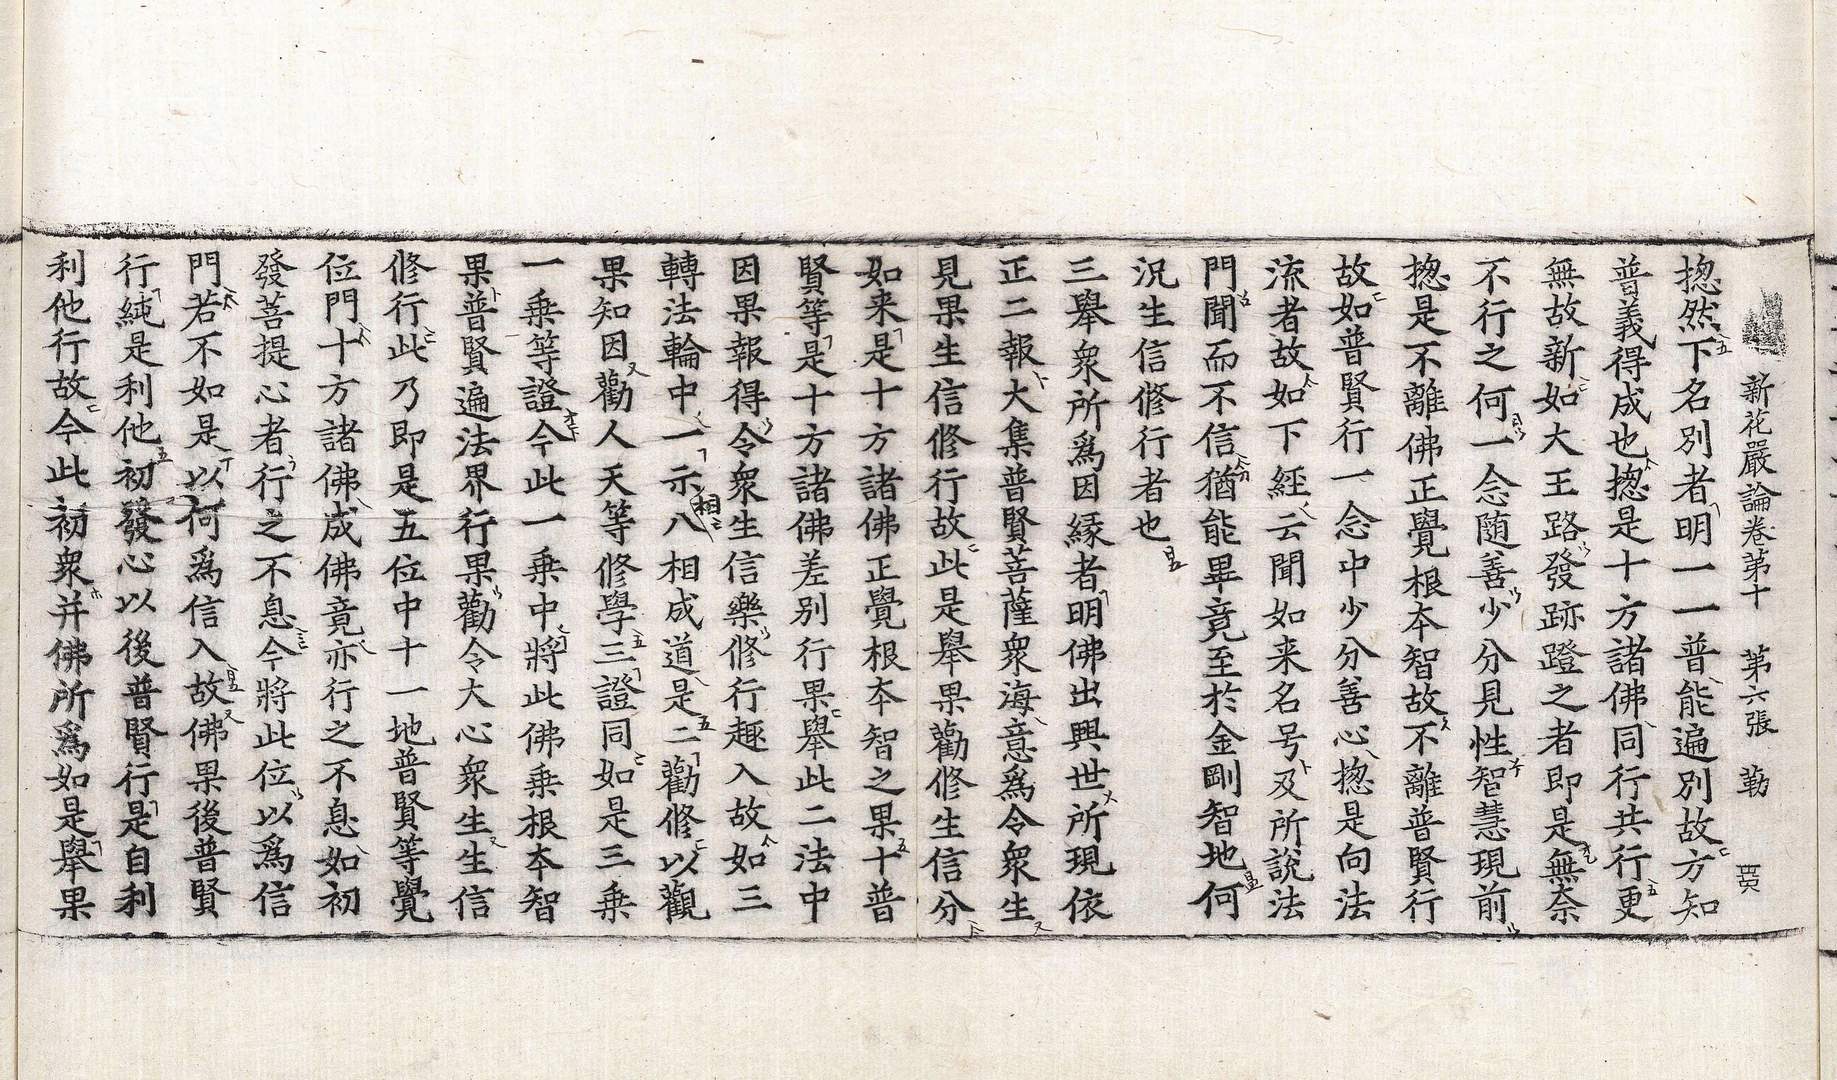 新花嚴論卷第十 第六張 勒
揔然下名別者明一一普能遍別故方知
普義得成也揔是十方諸佛同行共行更
無故新如大王路發跡蹬之者即是無奈
不行之何一念随善少分見性智慧現前
揔是不離佛正覺根本智故不離普賢行
故如普賢行一念中少分善心揔是向法
流者故如下經云聞如来名号及所說法
門聞而不信猶能畢竟至於金剛智地何
況生信修行者也
三舉衆所爲因縁者明佛出興世所現依
正二報大集普賢菩薩衆海意爲令衆生
見果生信修行故此是舉果勸修生信分
如来是十方諸佛正覺根本智之果十普
賢等是十方諸佛差別行果舉此二法中
因果報得令衆生信樂修行趣入故如三
轉法輪中一示八相成道是二勸修以觀
相
果知因勸人天等修學三證同如是三乗
一乗等證今此一乗中將此佛乗根本智
果普賢遍法界行果勸令大心衆生生信
修行此乃即是五位中十一地普賢等覺
位門十方諸佛成佛竟亦行之不息如初
發菩提心者行之不息今將此位以爲信
門若不如是以何爲信入故佛果後普賢
行純是利他初發心以後普賢行是自利
利他行故今此初衆并佛所爲如是舉果